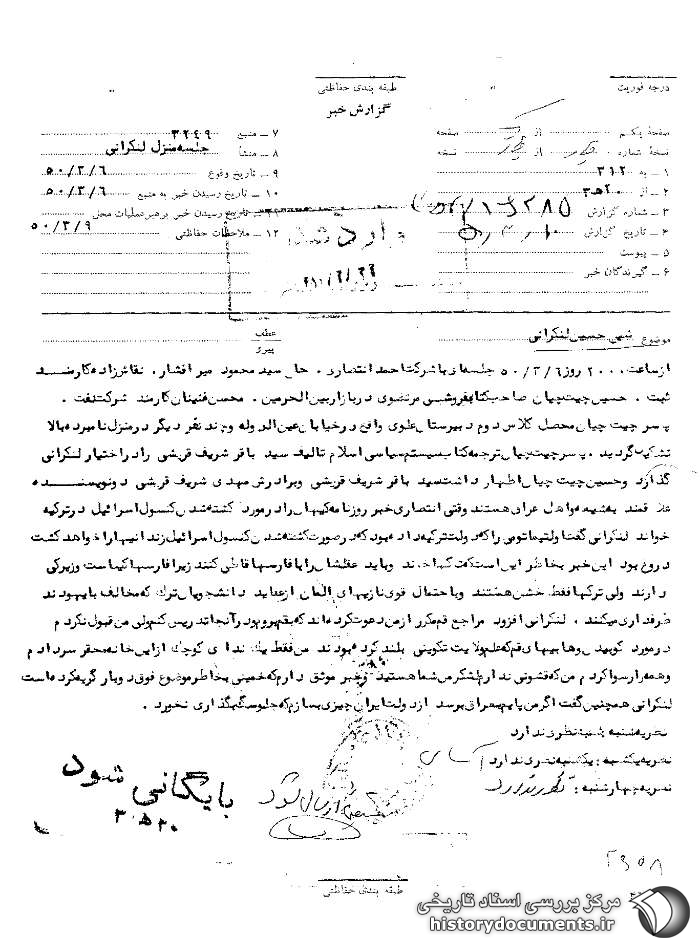 درجه فوریت
طبقه بندی حفاظتی
گزارش خبر
صفحه یکم از صفحه
نسخهٔ شماره از نسخه
۱ – به ۳۱۲
۲ – از ۳ه۲۰
۳ – شماره گزارش
۴ – تاریخ گزارش
۵ – پیوست
۶ – گیرندگان خبر
۷ – منبع ۳۲۴۹
۸ – منشأ جلسه منزل لنکرانی
۹ – تاریخ وقوع ۵۰/۳/۶
۱۰ – تاریخ رسیدن خبر به منبع ۵۰/۳/۶
۱۱ – تاریخ رسیدن خبر به رهبر عملیات محل
۱۲ – ملاحظات حفاظتی ۵۰/۳/۹
وارد شد
موضوع شیخ حسین لنکرانی
عطف
پیرو
از ساعت ۲۰۰۰ روز ۵۰/۳/۶ جلسه ای با شرکت احمد انتصاری ، سید محمود میر افشار ، نقاش زاده کارمند
ثبت ، حسین چیت چیان صاحب کتابفروشی مرتضوی در بازار بین الحرمین ، محسن کارمند شرکت نفت ،
پسر چیت چیان محصل کلاس دوم دبیرستان علوی واقع در خیابان عین الدوله و چند نفر دیگر در منزل نامبرده بالا
تشکیل گردید . پسر چیت چیان ترجمه کتاب سیستم سیاسی اسلام تالیف سید باقر شریف قریشی را در اختیار لنکرانی
گذارد و حسین چیت چیان اظهار داشت سید باقر شریف قریشی و برادرش مهدی شریف قریشی دو نویسنده
علاقمند به شیعه و اهل عراق هستند وقتی انتصاری خبر روزنامه کیهان را در مورد کشته شدن کنسول اسرائیل در ترکیه
خواند لنکرانی گفت اولتیماتومی را که دولت ترکیه داده بود که در صورت کشته شدن کنسول اسرائیل زندانیها را خواهد کشت
دروغ بود این خبر بخاطر این است که و باید عقلشان را با فارسها قاطی کنند زیرا فارسها کیاست و زیرکی
دارند ولی ترکها فقط خشن هستند و با احتمال قوی نازیهای آلمان از عقاید دانشجویان ترک که مخالف با یهودند
طرفداری میکنند . لنکرانی افزود مراجع قم مکرر از من دعوت کرده اند که بقم بروم و در آنجا تدریس کنم ولی من قبول نکردم
در مورد کوبیدن وهابیهای قم که علم ولایت تکوینی بلند کرده بودند من فقط یک ندای کوچک از این خانه محقر سر دادم
و همه را رسوا کردم من که قشونی ندارم لشکر من شما هستید و خبر موثق دارم که خمینی بخاطر موضوع فوق دو بار گریه کرده است
لنکرانی همچنین گفت اگر من پایم به عراق برسد از دولت ایران چیزی بسازم که جلو سگ بگذاری نخورد .
نظریه شنبه : شنبه نظری ندارد
نظریه یکشنبه : یکشنبه نظری ندارد
نظریه چهارشنبه : نظری ندارد
بایگانی شود
۳ه۲۰
ارسال شود
طبقه بندی حفاظتی
مرکز بررسی اسناد تاریخی
historydocuments.ir